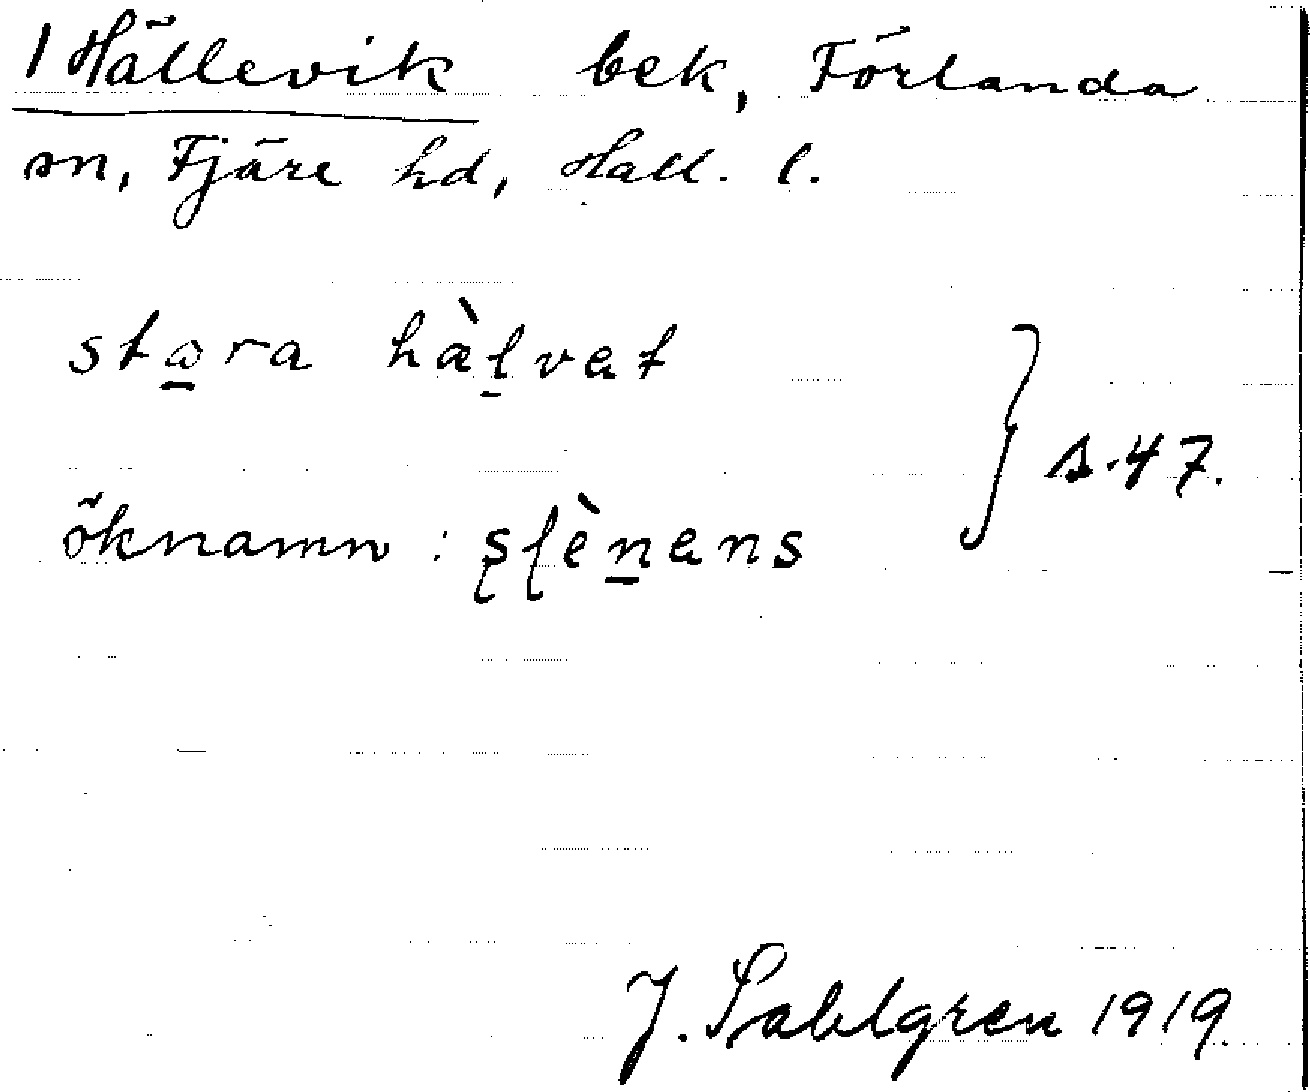 1 Hällevik bek, Förlanda
sn, Fjäre hd, Hall. l.
stara hàlvat
s. 47.
öknamn : slènans
J. Sahlgren 1919.